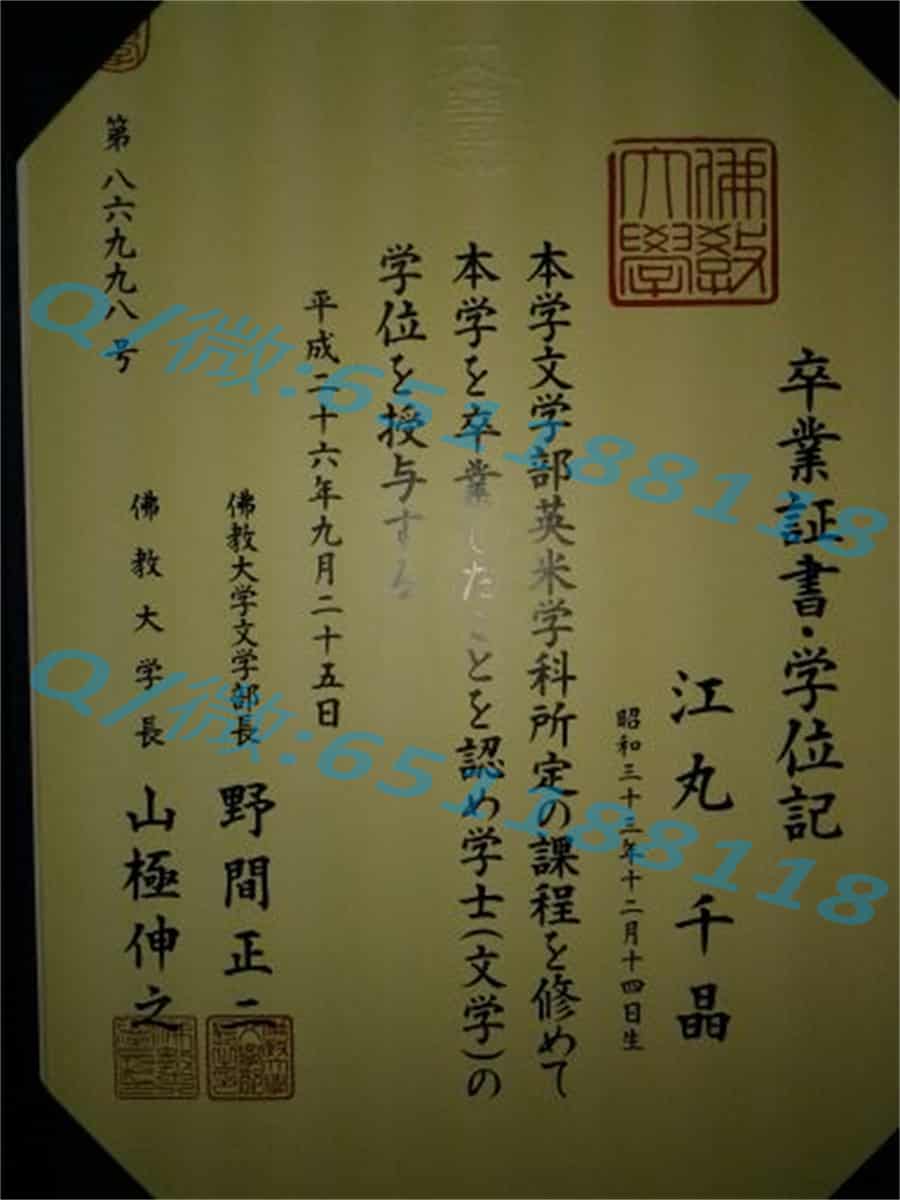 佛教大學
卒業証書・学位記
江丸千晶
昭和三十三年十二月十四日生
本学文学部英米学科所定の課程を修めて
本学を卒業したことを認め学士(文学)の
学位を授与する
平成二十六年九月二十五日
佛教大学文学部長 野間正二
佛教大学長 山極伸之
第八六九九八号
Q/微:651188118
Q/微:651188118